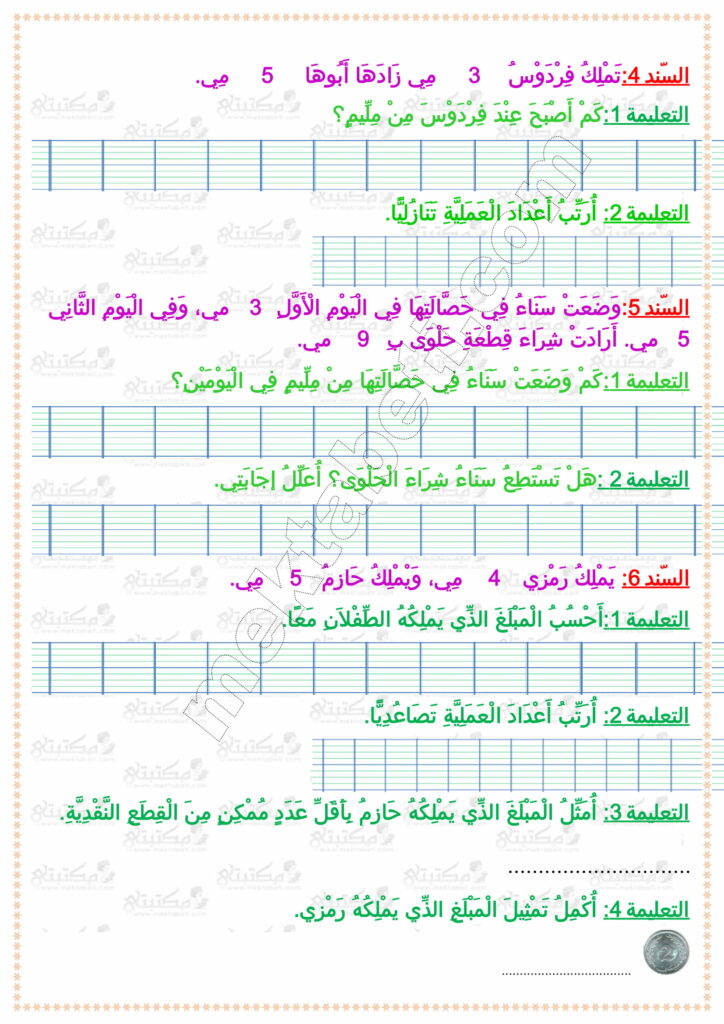 السّند 4:تَمْلِكُ فِرْدَوْسُ 3 مِي زَادَهَا أَبُوهَا 5 مِي.
التعليمة 1:كَمْ أَصْبَحَ عِنْدَ فِرْدَوْسَ مِنْ مِلِّيمٍ؟
التعليمة 2: أُرَتِّبُ أَعْدَادَ الْعَمَلِيَّةِ تَنَازُلِيًّا.
السّند 5:وَضَعَتْ سَنَاءُ فِي حَصَّالَتِهَا فِي الْيَوْمِ الْأَوَّلِ 3 مي، وَفِي الْيَوْمِ الثَّانِي
5 مي. أَرَادَتْ شِرَاءَ قِطْعَةِ حَلْوَى بِ 9 مي.
التعليمة 1:كَمْ وَضَعَتْ سَنَاءُ فِي حَصَّالَتِهَا مِنْ مِلِّيمٍ فِي الْيَوْمَيْنِ؟
التعليمة 2 :هَلْ تَسْتَطِعُ سَنَاءُ شِرَاءَ الْحَلْوَى؟ أُعَلِّلُ إجَابَتِي.
السّند 6: يَمْلِكُ رَمْزي 4 مِي، وَيْمْلِكُ حَازمُ 5 مِي.
التعليمة 1:أَحْسُبُ الْمَبْلَغَ الذِّي يَمْلِكُهُ الطِّفْلاَنِ مَعًا.
التعليمة 2: أُرَتِّبُ أَعْدَادَ الْعَمَلِيَّةِ تَصَاعُدِيًّا.
التعليمة 3: أُمَثِّلُ الْمَبْلَغَ الذِّي يَمْلِكُهُ حَازمُ بِأَقَلِّ عَدَدٍ مُمْكِنٍ مِنَ الْقِطَعِ النَّقْدِيَّةِ.
...............................
التعليمة 4: أُكْمِلُ تَمْثِيلَ الْمَبْلَغِ الذِّي يَمْلِكُهُ رَمْزي.
2 ....................................
mektabeti.com